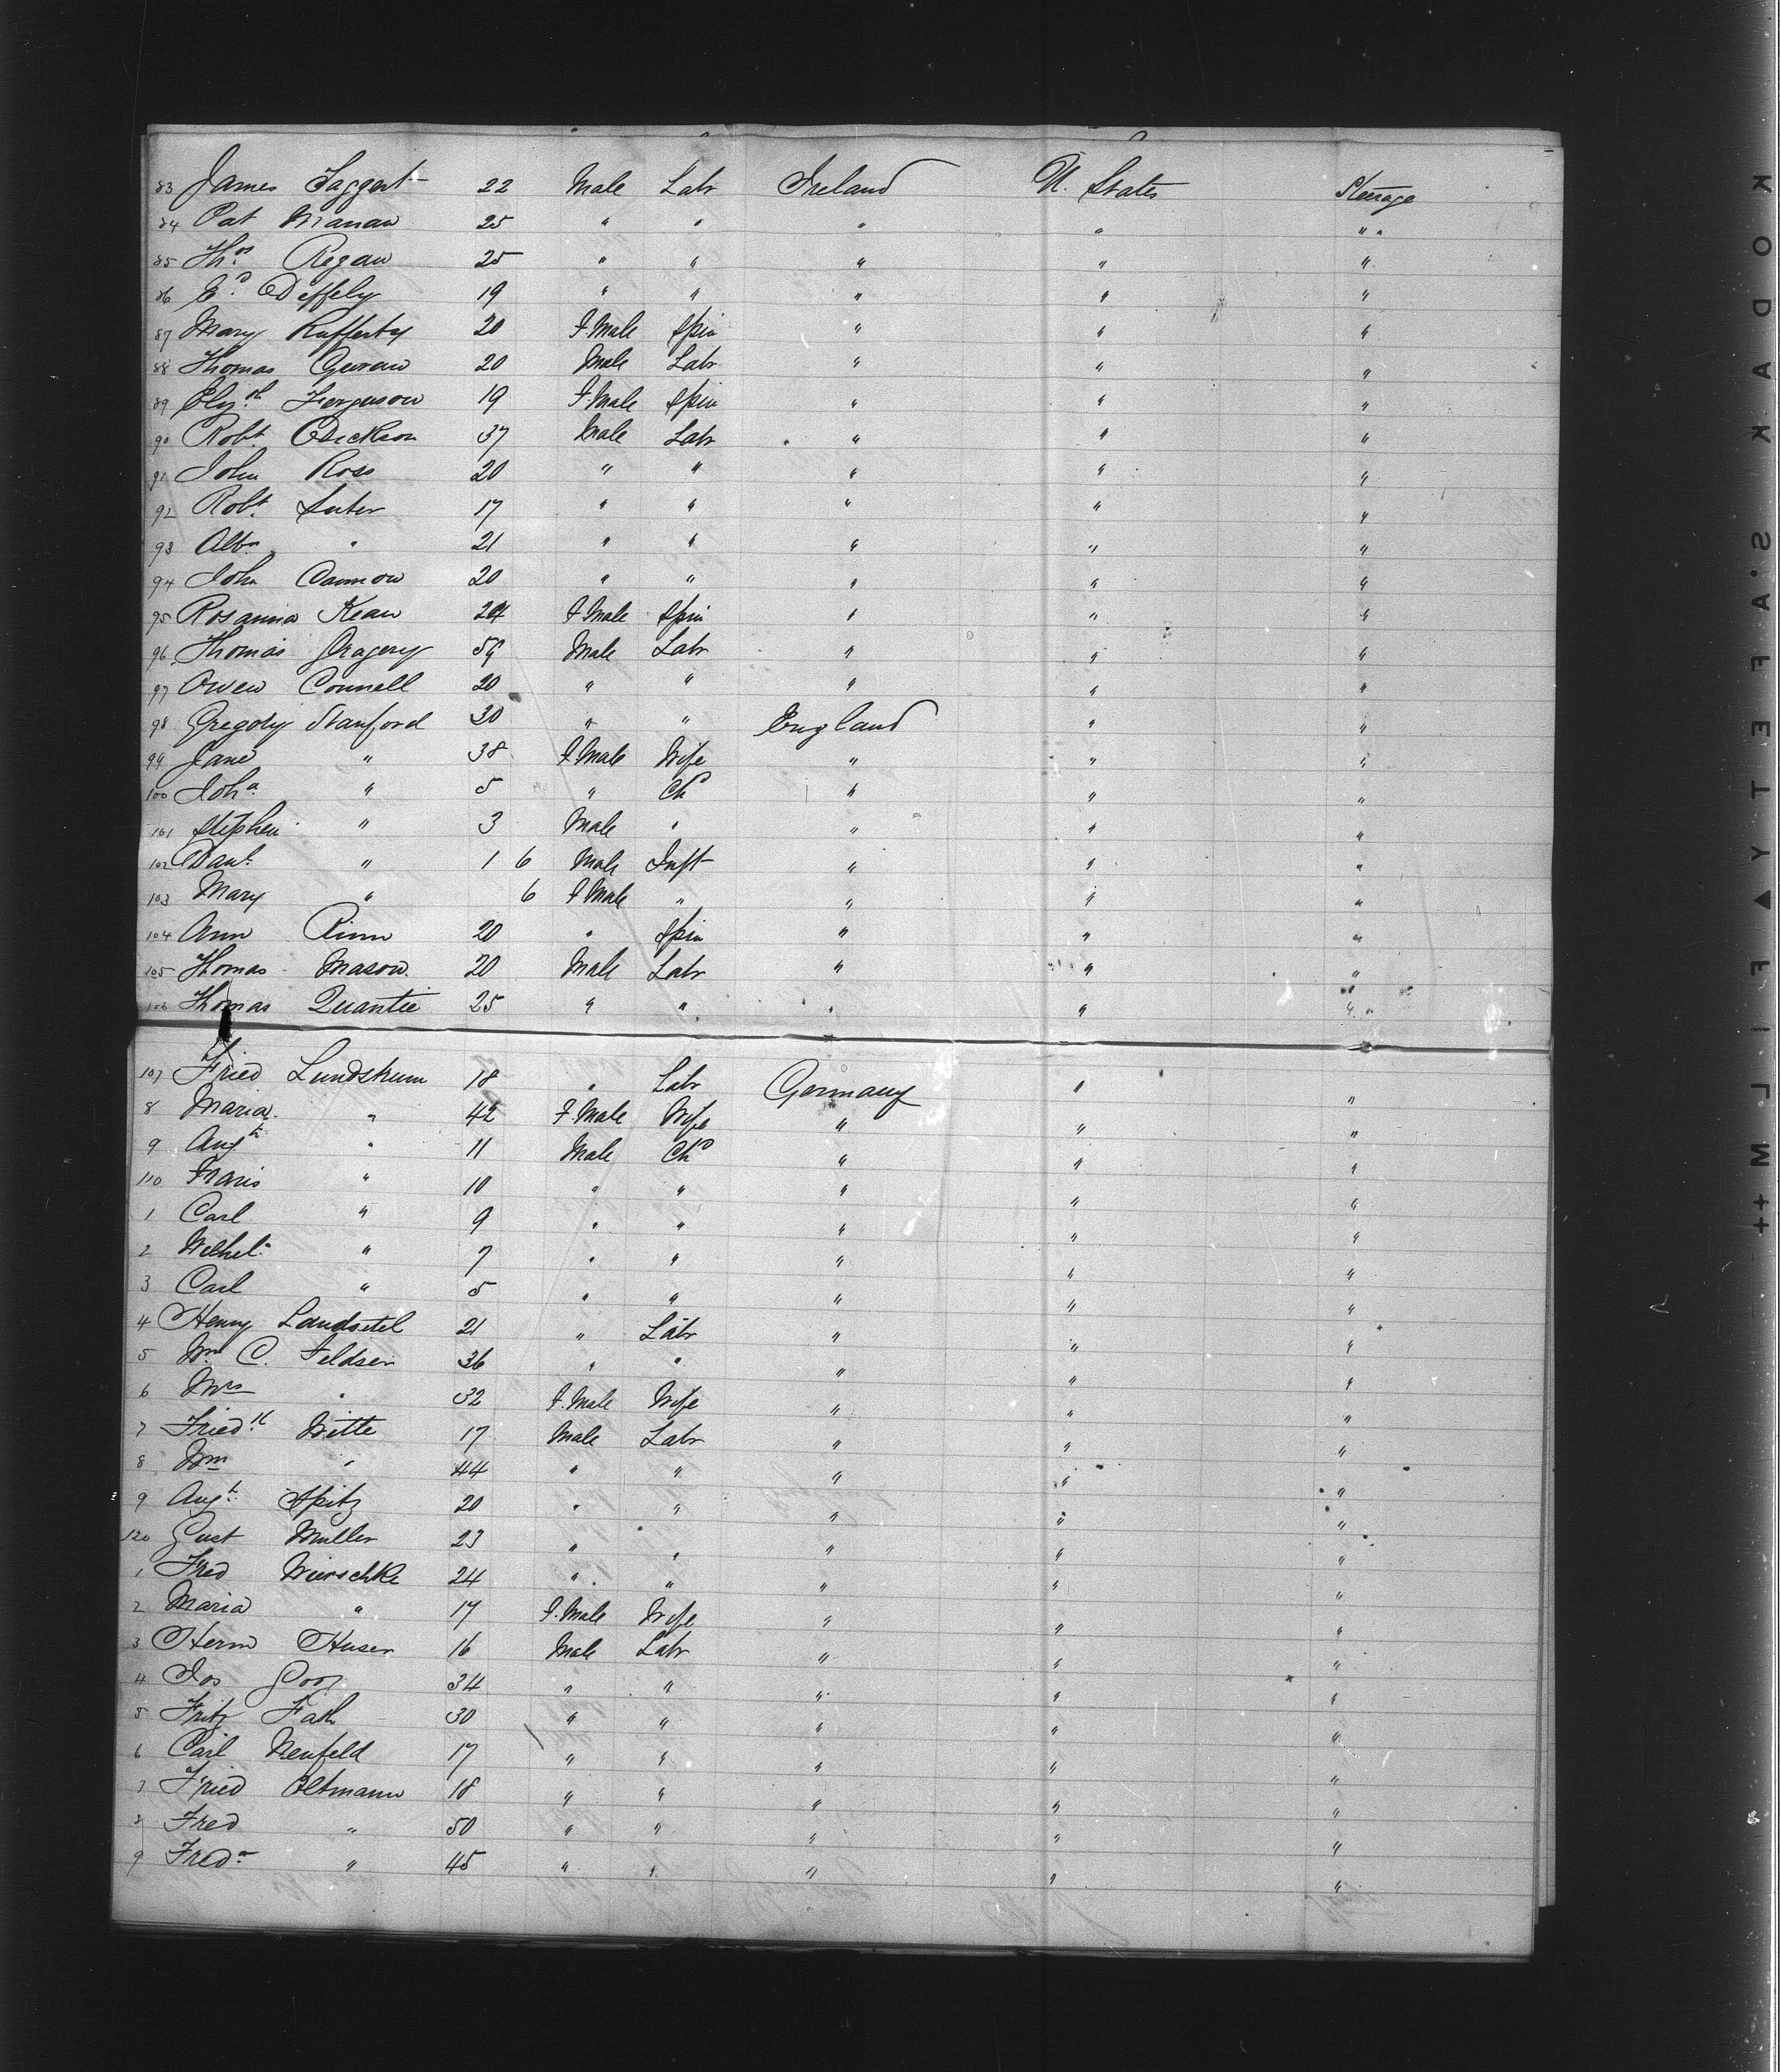 83 James Taggert 22 Male Labr Ireland U. States Steerage
84 Pat Manaw 25 " " " " "
85 Thos Regan 25 " " " " "
86 Ed Deffely 19 " " " " "
87 Mary Rafferty 20 F.Male Spin " " "
88 Thomas 20 Male Labr " " "
89 Elizth Ferguson 19 F.Male Spin " " "
90 Robt Dickson 37 Male Labr " " "
91 John Ross 20 " " " " "
92 Robt Suter 17 " " " " "
93 " 21 " " " " "
94 John 20 " " " " "
95 Rosanna Kean 24 F Male Spin " " "
96 Thomas Gragery 59 Male Labr " " "
97 Owen Connell 20 " " " " "
98 Gregory Stanford 30 " " England " "
99 Jane " 38 F.Male Wife " " "
100 Joha " 5 " Chd " " "
101 Stephen " 3 Male " " " "
102 Danl " 1 6 Male Inft " " "
103 Mary " 6 F Male " " " "
104 Ann 20 " Spin " " "
105 Thomas Mason 20 Male Labr " " "
106 Thomas Quantie 25 " " " " "
107 Fried Lundskum 18 " Labr Germany " "
8 Maria " 42 F.Male Wife " " "
9 Augt " 11 Male Chd " " "
110 Frans " 10 " " " " "
1 Carl " 9 " " " " "
2 Wilhel " 7 " " " " "
3 Carl " 5 " " " " "
4 Henry Landsetel 21 " Labr " " "
5 Wm C. Feldsen 36 " " " " "
6 Mrs " 32 F.Male Wife " " "
7 Friedk Witte 17 Male Labr " " "
8 Wm " 44 " " " " "
9 Augt Spitz 20 " " " " "
120 Gust Muller 23 " " " " "
1 Fred Wierschke 24 " " " " "
2 Maria " 17 F.Male Wife " " "
3 Herm Huser 16 Male Labr " " "
4 Jos 34 " " " " "
5 Fritz Fash 30 " " " " "
6 Carl Neufeld 17 " " " " "
7 Fried Oltmann 18 " " " " "
8 Fred " 50 " " " " "
9 Freda " 45 " " " " "
KODAK·SAFETY▲FILM++